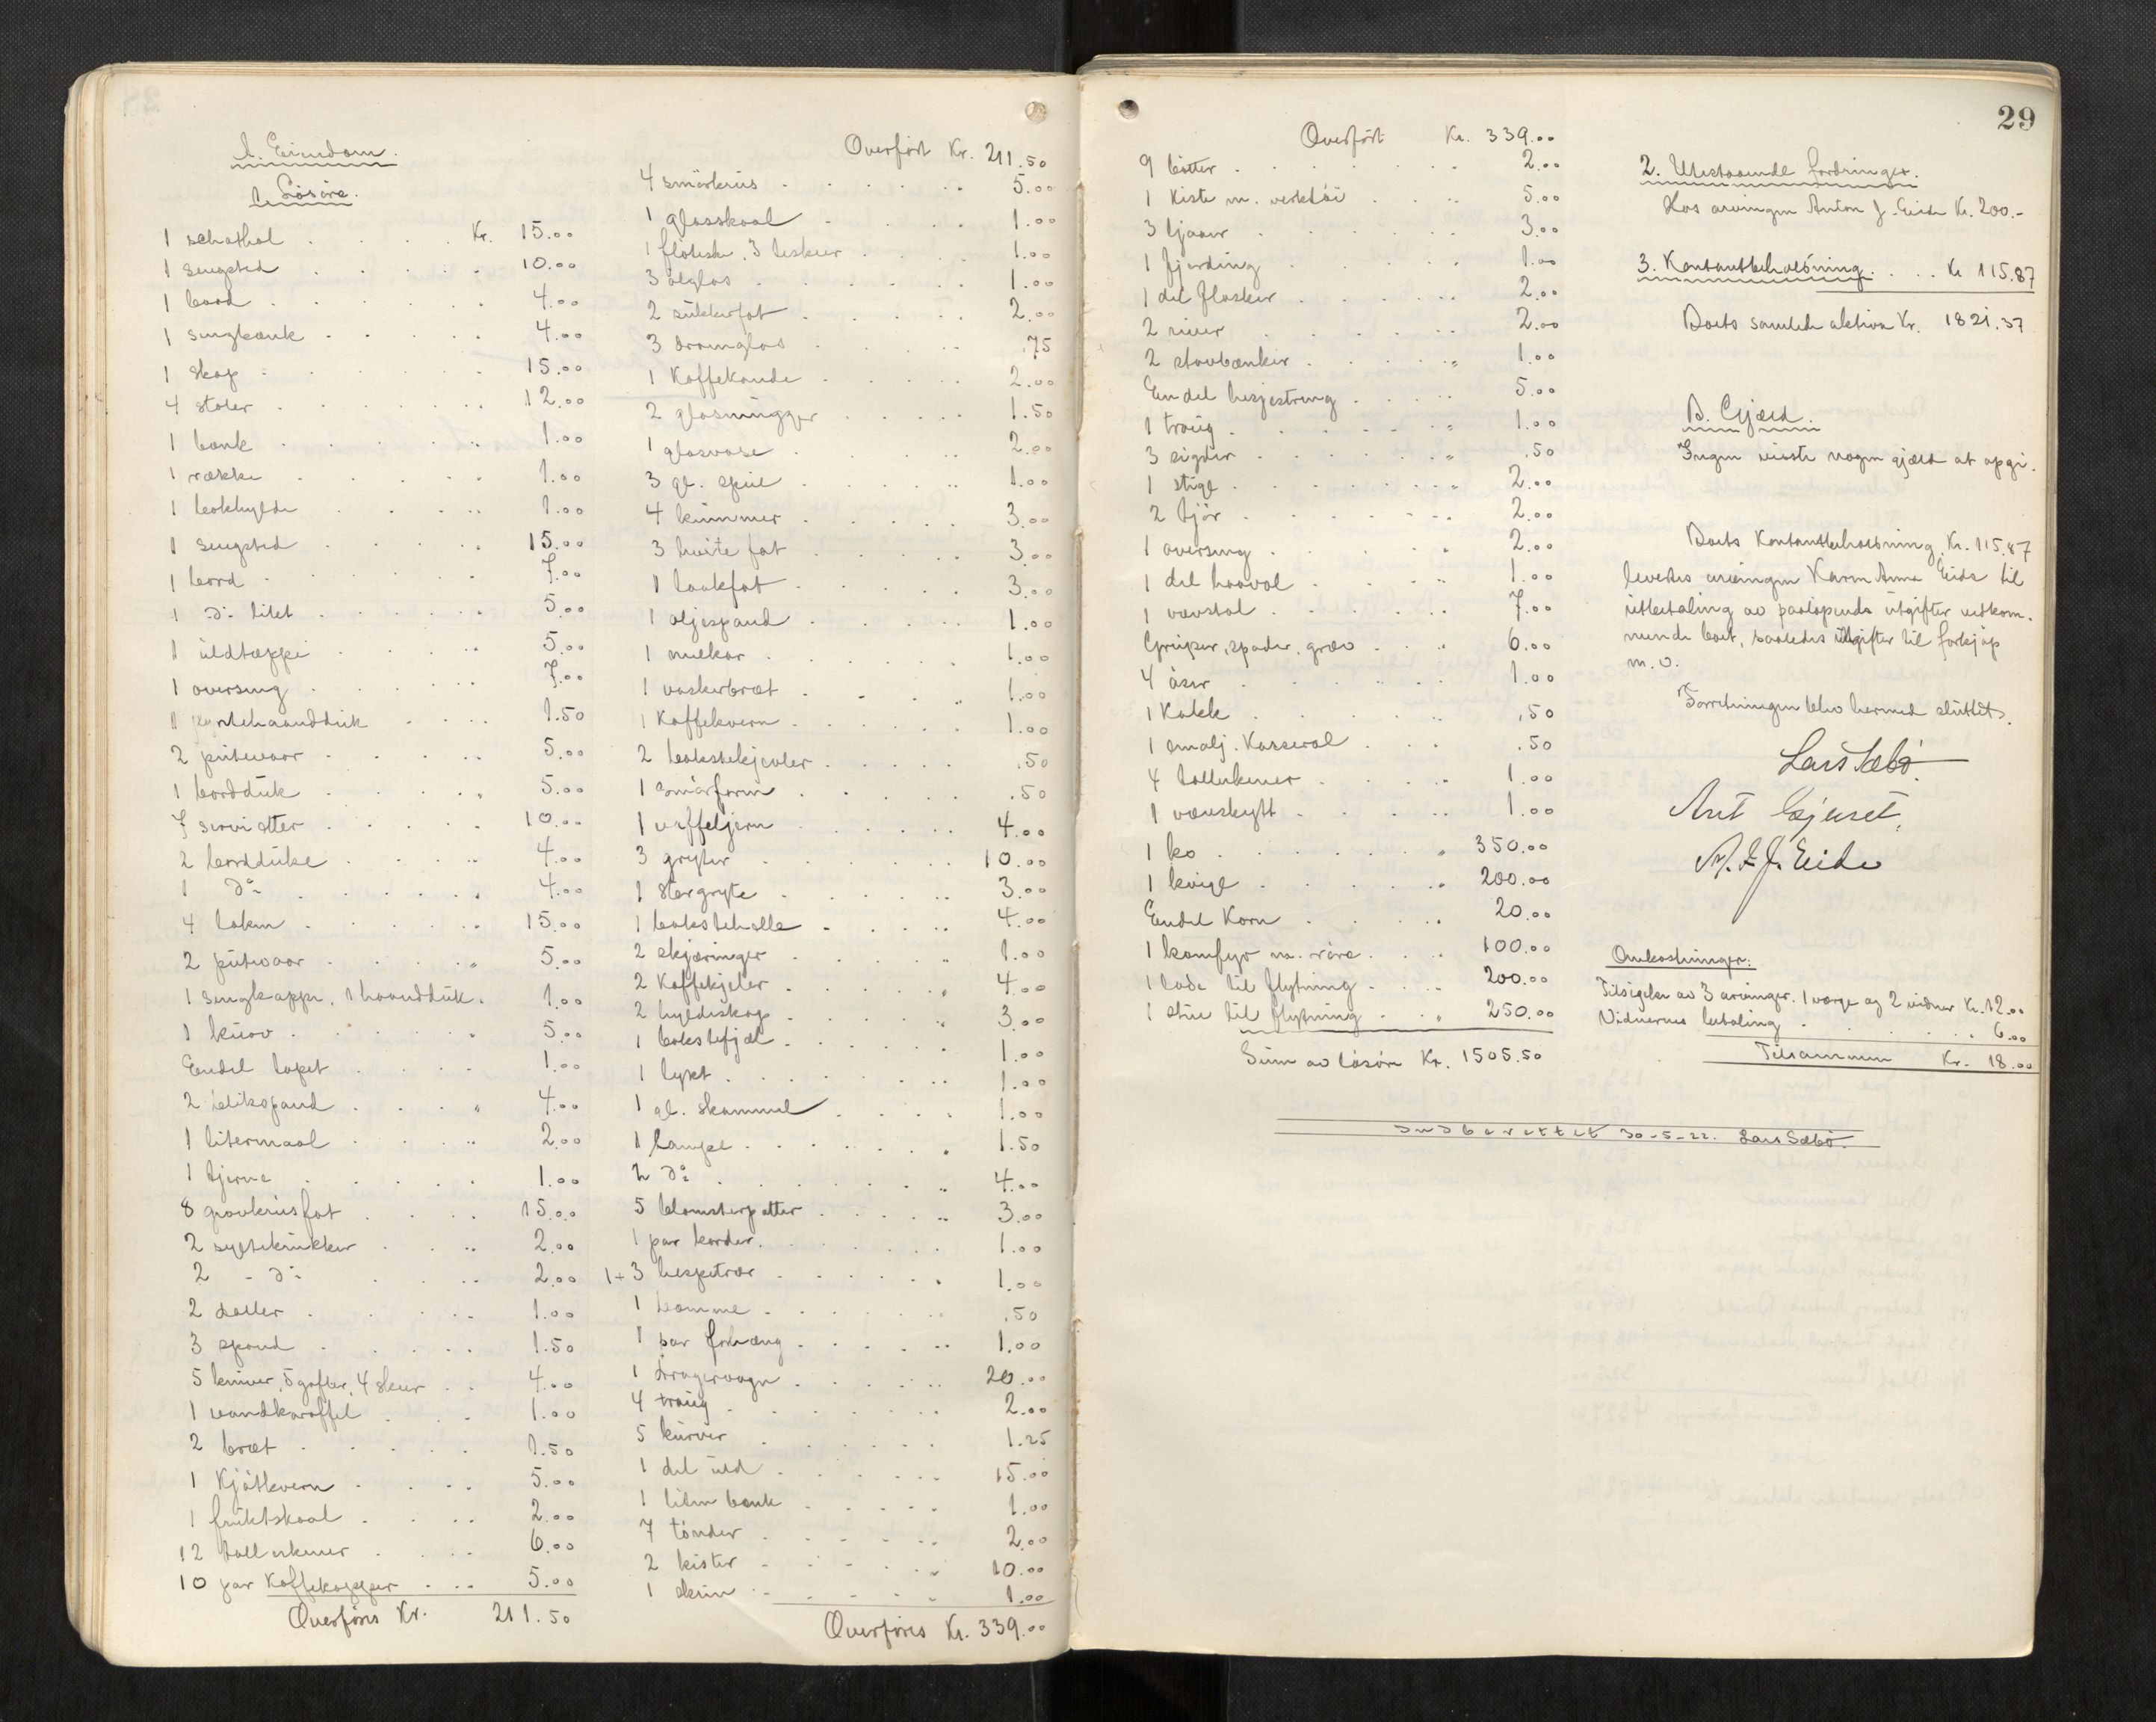 A. Eiendom.
1. Lösöre.
1 schathol . . . . Kr. 15.00
1 sengsted . . . . . 10.00
1 bord . . . . . . 4.00
1 sengbænk . . . . . 4.00
1 skap . . . . . . 15.00
4 stoler . . . . . . 12.00
1 bænk . . . . . . 1.00
1 række . . . . . 1.00
1 bokhylde . . . . . 1.00
1 sengsted . . . . . 15.00
1 bord . . . . . . 7.00
1 do litet . . . . . 5.00
1 uldtæppe . . . . . 5.00
1 overseng . . . . . 7.00
1 pyntehaandduk . . . . 1.50
2 putevaar . . . . . 5.00
1 bordduk . . . . . 5.00
7 servietter . . . . . 10.00
2 bordduke . . . . . 4.00
1 do . . . . . . 4.00
4 laken . . . . . . 15.00
2 putevaar . . . . . 5.00
1 sengkappe, 1 haandduk . 1.00
1 kurv . . . . . . 5.00
Endel tapet . . . . 1.00
2 blikspand . . . . 4.00
1 litermaal . . . . . 2.00
1 tjerne . . . . . 1.00
8 grovkrusfat . . . . 15.00
2 syltekrukker . . . 2.00
2 - do . . . . 2.00
2 doller . . . . . 1.00
3 spand . . . . . 1.50
5 kniver, 5 gafler, 4 skeer . . 4.00
1 vandkaraffel . . . 1.00
2 bræt . . . . . 1.50
1 Kjötkvern . . . . 5.00
1 fruktskaal . . . . 2.00
12 tallerkener . . . . 6.00
10 par Kaffekopper . . . 5.00
Overföres Kr. 211.50
Overfört Kr. 211.50
4 smörkrus . . . . . . 5.00
1 glasskaal . . . . . 1.00
1 flöteske, 3 teskeer . . . . 1.00
3 ölglas . . . . . . 1.00
2 sukkerfat . . . . . 2.00
3 dramglas . . . . . .75
1 Kaffekande . . . . . 2.00
2 glasmugger . . . . . 1.50
1 glasvase . . . . . 2.00
3 gl. speil . . . . . 1.00
4 kummer . . . . . 3.00
3 hvite fat . . . . . 3.00
1 laakfat . . . . . 3.00
1 oljespand . . . . . 1.00
1 melkar . . . . . . 1.00
1 vaskebræt . . . . . 1.00
1 Kaffekvern . . . . . 1.00
2 bakstekjevler . . . . . .50
1 smörform . . . . . .50
1 vaffeljern . . . . . 4.00
3 gryter . . . . . . 10.00
1 storgryte . . . . . 3.00
1 bakstehelle . . . . . 4.00
2 skjæringer . . . . . 1.00
2 Kaffekjeler . . . . . 4.00
2 hyldeskap . . . . . 3.00
1 bakstefjæl . . . . . 1.00
1 lykt . . . . . . 1.00
1 gl. skammel . . . . 1.00
1 lampe . . . . . . 1.50
2 do . . . . . . 4.00
5 blomsterpotter . . . . 3.00
1 par karder . . . . . 1.00
1+3 hespetrær . . . . . 1.00
1 komme . . . . . .50
1 par forhæng . . . . . 1.00
1 dragervogn . . . . . 20.00
4 traug . . . . . . 2.00
5 kurver . . . . . 1.25
1 del uld . . . . . 15.00
1 liten bænk . . . . . 1.00
7 tönder . . . . . 2.00
2 kister . . . . . 10.00
1 skrin . . . . . 1.00
Overföres Kr. 339.00
29
Overfört Kr. 339.00
9 bötter . . . . . . 2.00
1 Kiste m. verktöi . . . . 5.00
3 ljaaer . . . . . . 3.00
1 fjerding . . . . . 1.00
1 del flasker . . . . . 2.00
2 river . . . . . . 2.00
2 stavbænker . . . . . 1.00
Endel hesjestreng . . . . 5.00
1 traug . . . . . . 1.00
3 sigder . . . . . . .50
1 stige . . . . . . 2.00
2 tjör . . . . . . 2.00
1 overseng . . . . . 2.00
1 del haavol . . . . 1.00
1 vævstol . . . . . 7.00
Greiper, spader, græv . . . 6.00
4 öser . . . . . 1.00
1 Kakk . . . . . .50
1 emalj. Kasserol . . . .50
4 tallerkener . . . . 1.00
1 vævskytt . . . . 1.00
1 ko . . . . . . 350.00
1 kvige . . . . . 200.00
Endel Korn . . . . 20.00
1 komfyr m. röre . . . 100.00
1 lade til flytning . . . 200.00
1 stue til flytning . . . 250.00
Sum av lösöre Kr. 1505.50
Indberettet 30-5-22. Lars Sæbö.
2. Utestaaende fordringer.
Hos arvingen Anton J. Eide Kr. 200.-
3. Kontantbeholdning . . . Kr 115.87
Boets samlede aktiva Kr. 1821.37
B. Gjæld.
Ingen visste nogen gjæld at opgi.
Boets Kontantbeholdning, Kr. 115.87
levertes arvingen Karen Anna Eide til
utbetaling av paaløpende utgifter vedkom-
mende boet, saaledes utgifter til forkjøp
m. v.
Forretningen blev hermed sluttet.
Lars Sæbö.
Arnt Gjerset.
A. J. Eide
Omkostninger:
Tilsigelse av 3 arvinger, 1 værge og 2 vidner Kr. 12.00
Vidnernes betaling . . . . . . 6.00
Tilsammen Kr. 18.00